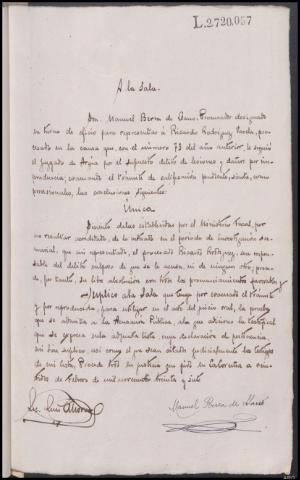 L.2720,057
A la Sala.
Don Manuel Berea de         , Procurador designado
en turno de oficio para representar á Ricardo Rodriguez       , pro-
cesado en la causa que, con el número 73 del año anterior, le siguió
el juzgado de Arzúa por el supuesto delito de lesiones y daños por im-
prudencia; evacuando el trámite de calificación pendiente, sienta, como
provisionales, las conclusiones siguientes:
Única
Disiento de las establecidas por el Ministerio fiscal, por
no resultar acreditado, de lo actuado en el período de investigación su-
marial, que mi representado, el procesado Ricardo Rodriguez, sea respon-
sable del delito culposo de que se le acusa, ni de ningún otro; proce-
de, por tanto, su libre absolución con todos los pronunciamientos favorables y
Suplico a la Sala que tenga por evacuado el trámite
y por reproducida, para utilizar en el acto del juicio oral, la prueba
que se admita a la Acusación Pública, a la que adiciono la testifical
que se expresa en la adjunta lista, cuya declaración de pertinencia,
así bien suplico, así como el que sean citados judicialmente los testigos
de mi lista, Procede todo en justicia que pido en La Coruña a vein-
        de Febrero de mil novecientos treinta y siete
Lic. Luis
Manuel Berea de